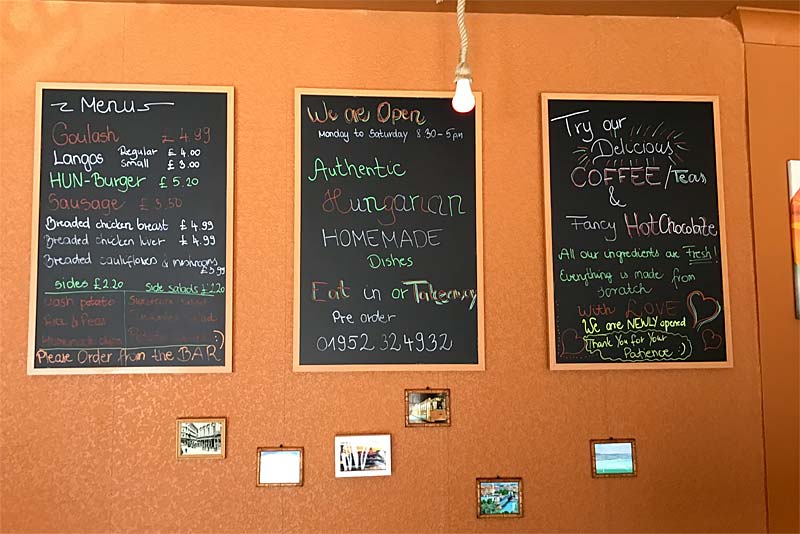 Menu
Goulash £ 4.99
Langos Regular £ 4.00
Small £ 3.00
HUN-Burger £ 5.20
Sausage £ 3.50
Breaded chicken breast £ 4.99
Breaded chicken liver £ 4.99
Breaded cauliflower & mushrooms
£5.99
sides £2.20 side salads £2.20
Mash potato
Rice & Peas
Please Order from the BAR
We are Open
Monday to Saturday 8.30-5pm
Authentic
Hungarian
HOMEMADE
Dishes
Eat in or Takeaway
Pre order
01952 324932
Try our
Delicious
COFFEE/Teas
&
Fancy HotChocolate
All our ingredients are Fresh!
Everything is made from
scratch
with LOVE
We are NEWLY opened
Thank You for Your
Patience :)